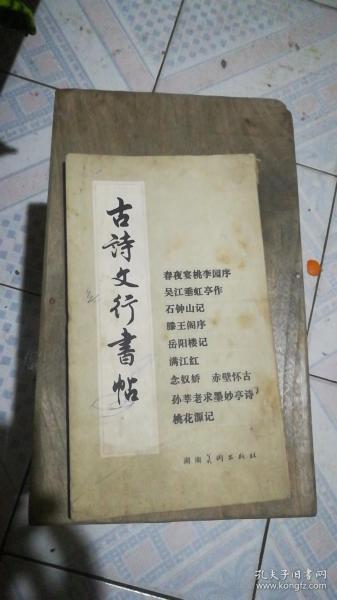 古詩文行書帖
春夜宴桃李园序
吴江垂虹亭作
石钟山记
滕王阁序
岳阳楼记
满江红
念奴娇 赤壁怀古
孙莘老求墨妙亭诗
桃花源记
湖南美术出版社
孔夫子旧书网